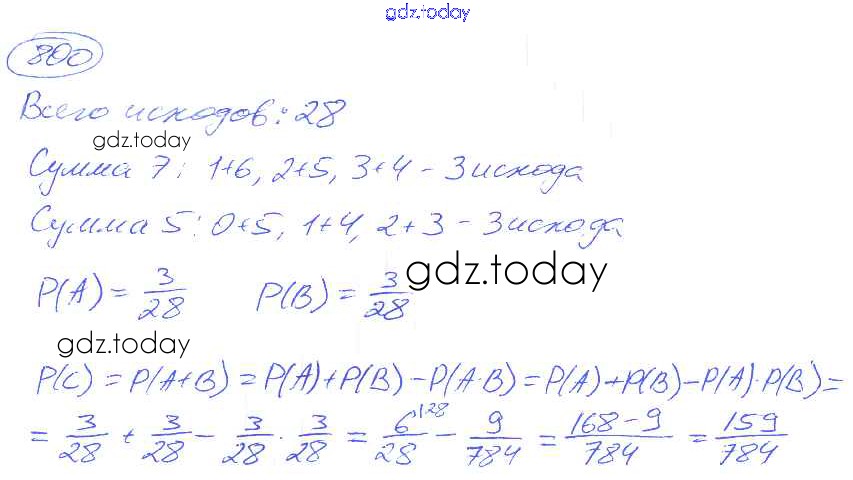 gdz.today
800
Всего исходов: 28
gdz.today
Сумма 7: 1+6, 2+5, 3+4 - 3 исхода
Сумма 5: 0+5, 1+4, 2+3 - 3 исхода
P(A) = 3/28 P(B) = 3/28
gdz.today
gdz.today
P(C) = P(A+B) = P(A)+P(B) - P(A·B) = P(A)+P(B)-P(A)·P(B) =
= 3/28 + 3/28 - 3/28 · 3/28 = 6/28 ^(28 - 9/784 = 168-9/784 = 159/784